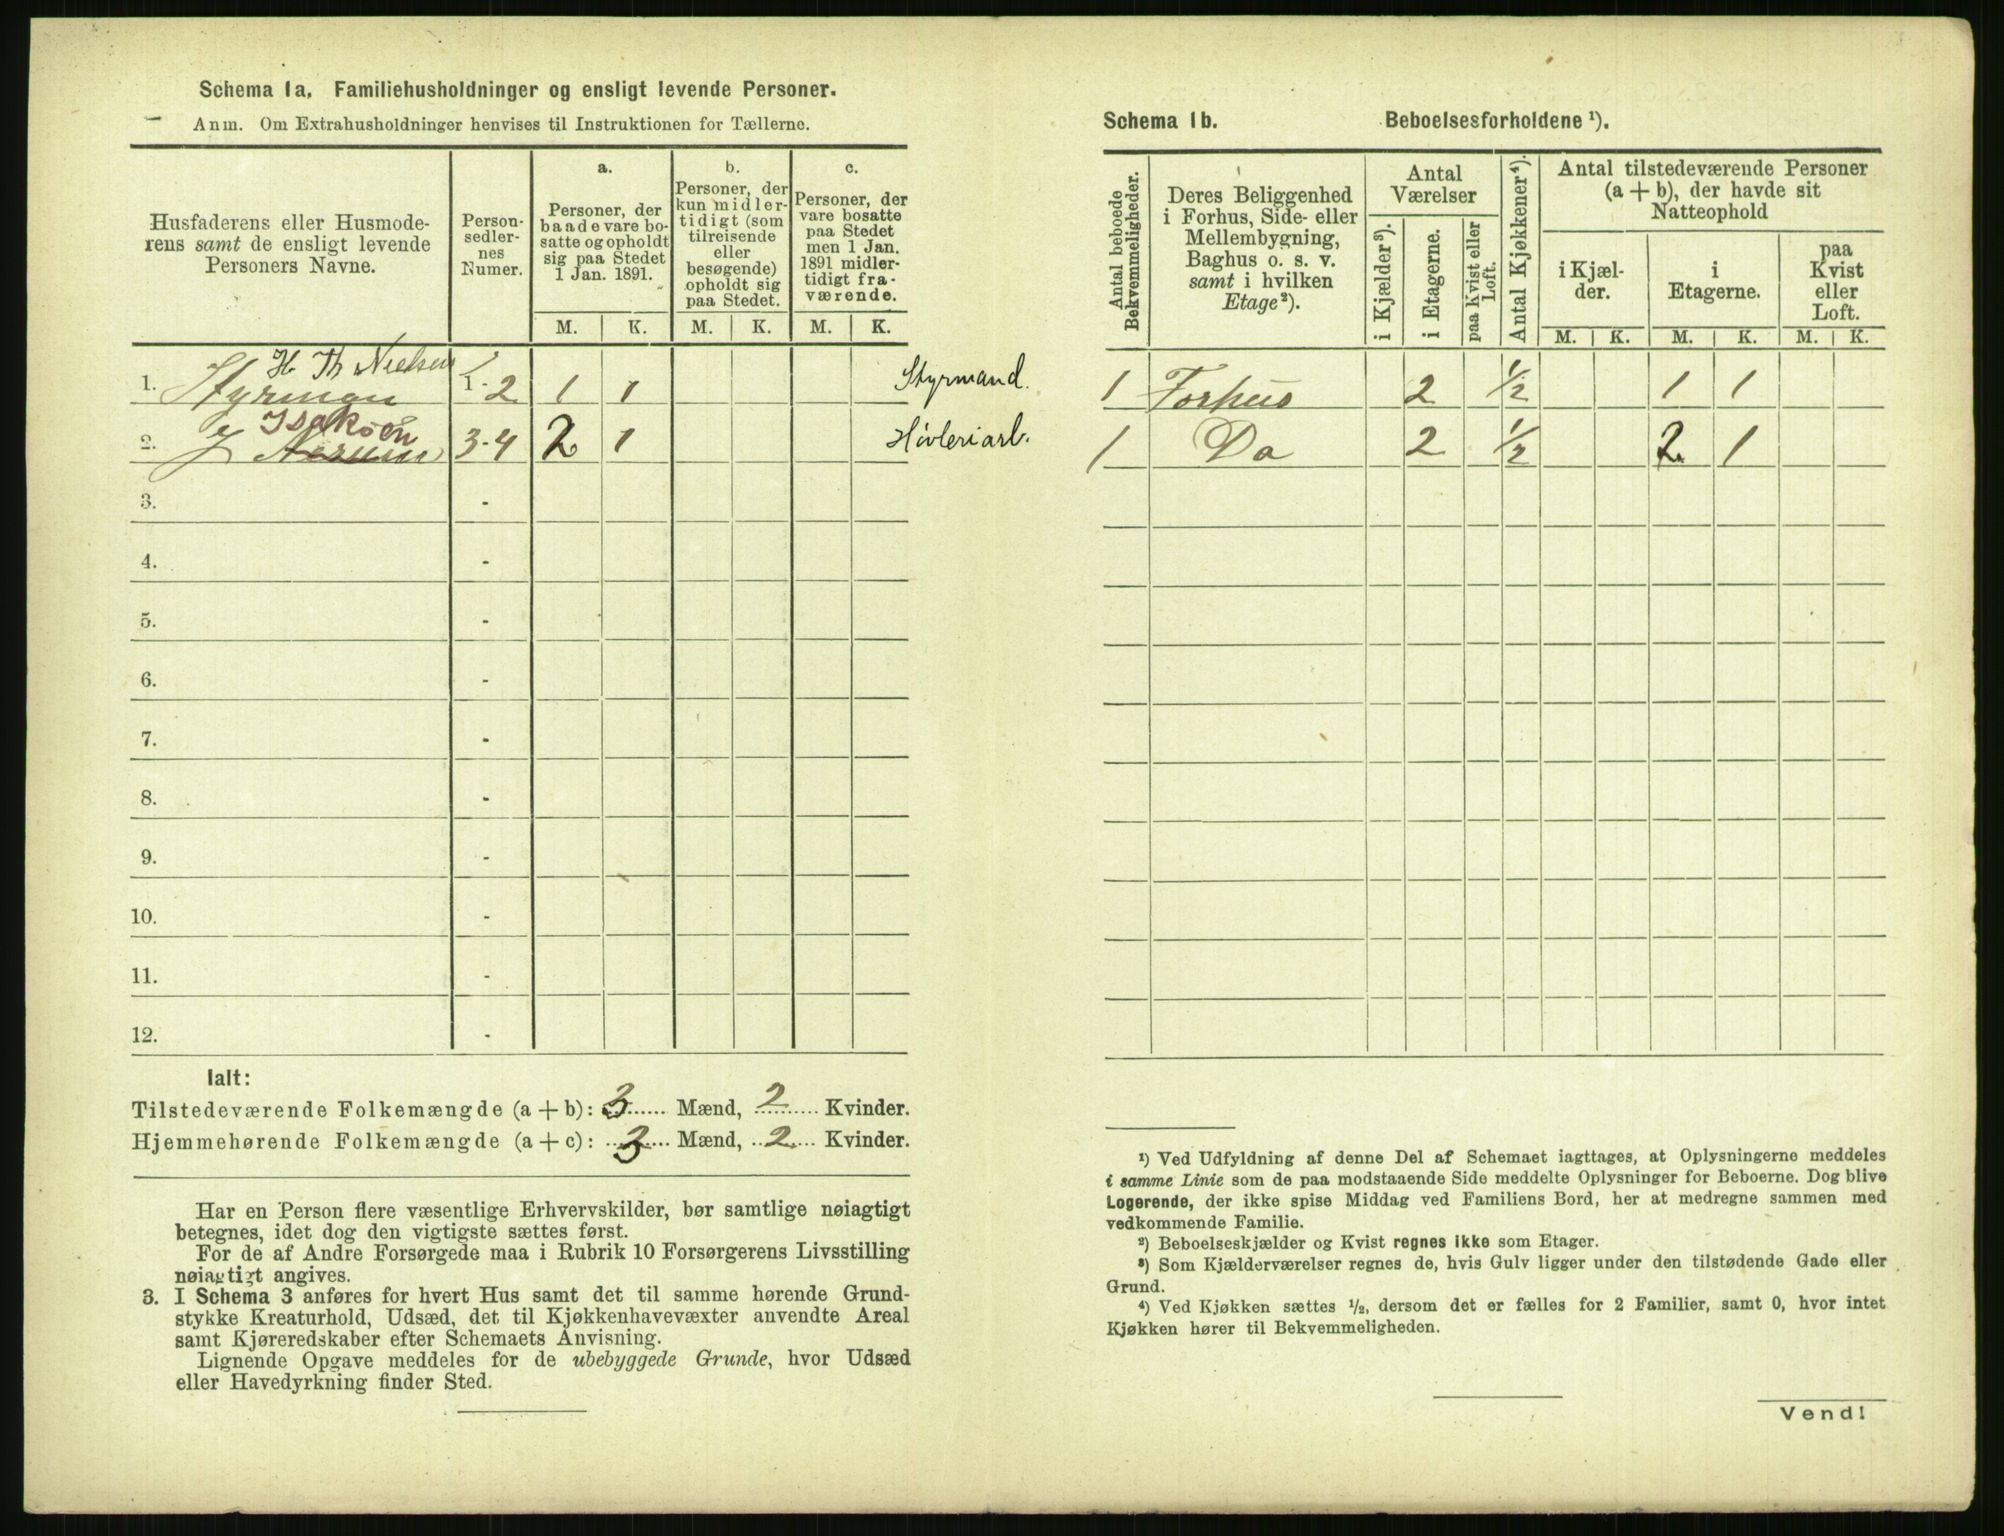 Schema 1a. Familiehusholdninger og ensligt levende Personer.
Anm. Om Extrahusholdninger henvises til Instruktionen for Tællerne.
Husfaderens eller Husmode-
rens samt de ensligt levende
Personers Navne.
Person-
sedler-
nes
Numer.
a.
Personer, der
baade vare bo-
satte og opholdt
sig paa Stedet
1 Jan. 1891.
b.
Personer, der
kun midler-
tidigt (som
tilreisende
eller
besøgende)
opholdt sig
paa Stedet.
c.
Personer, der
vare bosatte
paa Stedet
men 1 Jan.
1891 midler-
tidigt fra-
værende.
M. K. M. K. M. K.
H. Th Nielsen
1. Styrman 1-2 1 1 Styrmand.
Isaksen
2. J 3-4 2 1 Høvleriarb.
3. -
4. -
5. -
6. -
7. -
8. -
9. -
10. -
11. -
12. -
Ialt:
Tilstedeværende Folkemængde (a + b): 3 Mænd, 2 Kvinder.
Hjemmehørende Folkemængde (a + c): 3 Mænd, 2 Kvinder.
Har en Person flere væsentlige Erhvervskilder, bør samtlige nøiagtigt
betegnes, idet dog den vigtigste sættes først.
For de af Andre Forsørgede maa i Rubrik 10 Forsørgerens Livsstilling
nøiagtigt angives.
3. I Schema 3 anføres for hvert Hus samt det til samme hørende Grund-
stykke Kreaturhold, Udsæd, det til Kjøkkenhavevæxter anvendte Areal
samt Kjøreredskaber efter Schemaets Anvisning.
Lignende Opgave meddeles for de ubebyggede Grunde, hvor Udsæd
eller Havedyrkning finder Sted.
Schema 1b. Beboelsesforholdene ¹).
Antal beboede
Bekvemmeligheder.
Deres Beliggenhed
i Forhus, Side- eller
Mellembygning,
Baghus o. s. v.
samt i hvilken
Etage ²).
Antal
Værelser
i Kjælder ³).
i Etagerne.
paa Kvist eller
Loft.
Antal Kjøkkener ⁴).
Antal tilstedeværende Personer
(a + b), der havde sit
Natteophold
i Kjæl-
der.
i
Etagerne.
paa
Kvist
eller
Loft.
M. K. M. K. M. K.
1 Forhus 2 1/2 1 1
1 Do 2 1/2 2 1
¹) Ved Udfyldning af denne Del af Schemaet iagttages, at Oplysningerne meddeles
i samme Linie som de paa modstaaende Side meddelte Oplysninger for Beboerne. Dog blive
Logerende, der ikke spise Middag ved Familiens Bord, her at medregne sammen med
vedkommende Familie.
²) Beboelseskjælder og Kvist regnes ikke som Etager.
³) Som Kjælderværelser regnes de, hvis Gulv ligger under den tilstødende Gade eller
Grund.
⁴) Ved Kjøkken sættes ½, dersom det er fælles for 2 Familier, samt 0, hvor intet
Kjøkken hører til Bekvemmeligheden.
Vend!